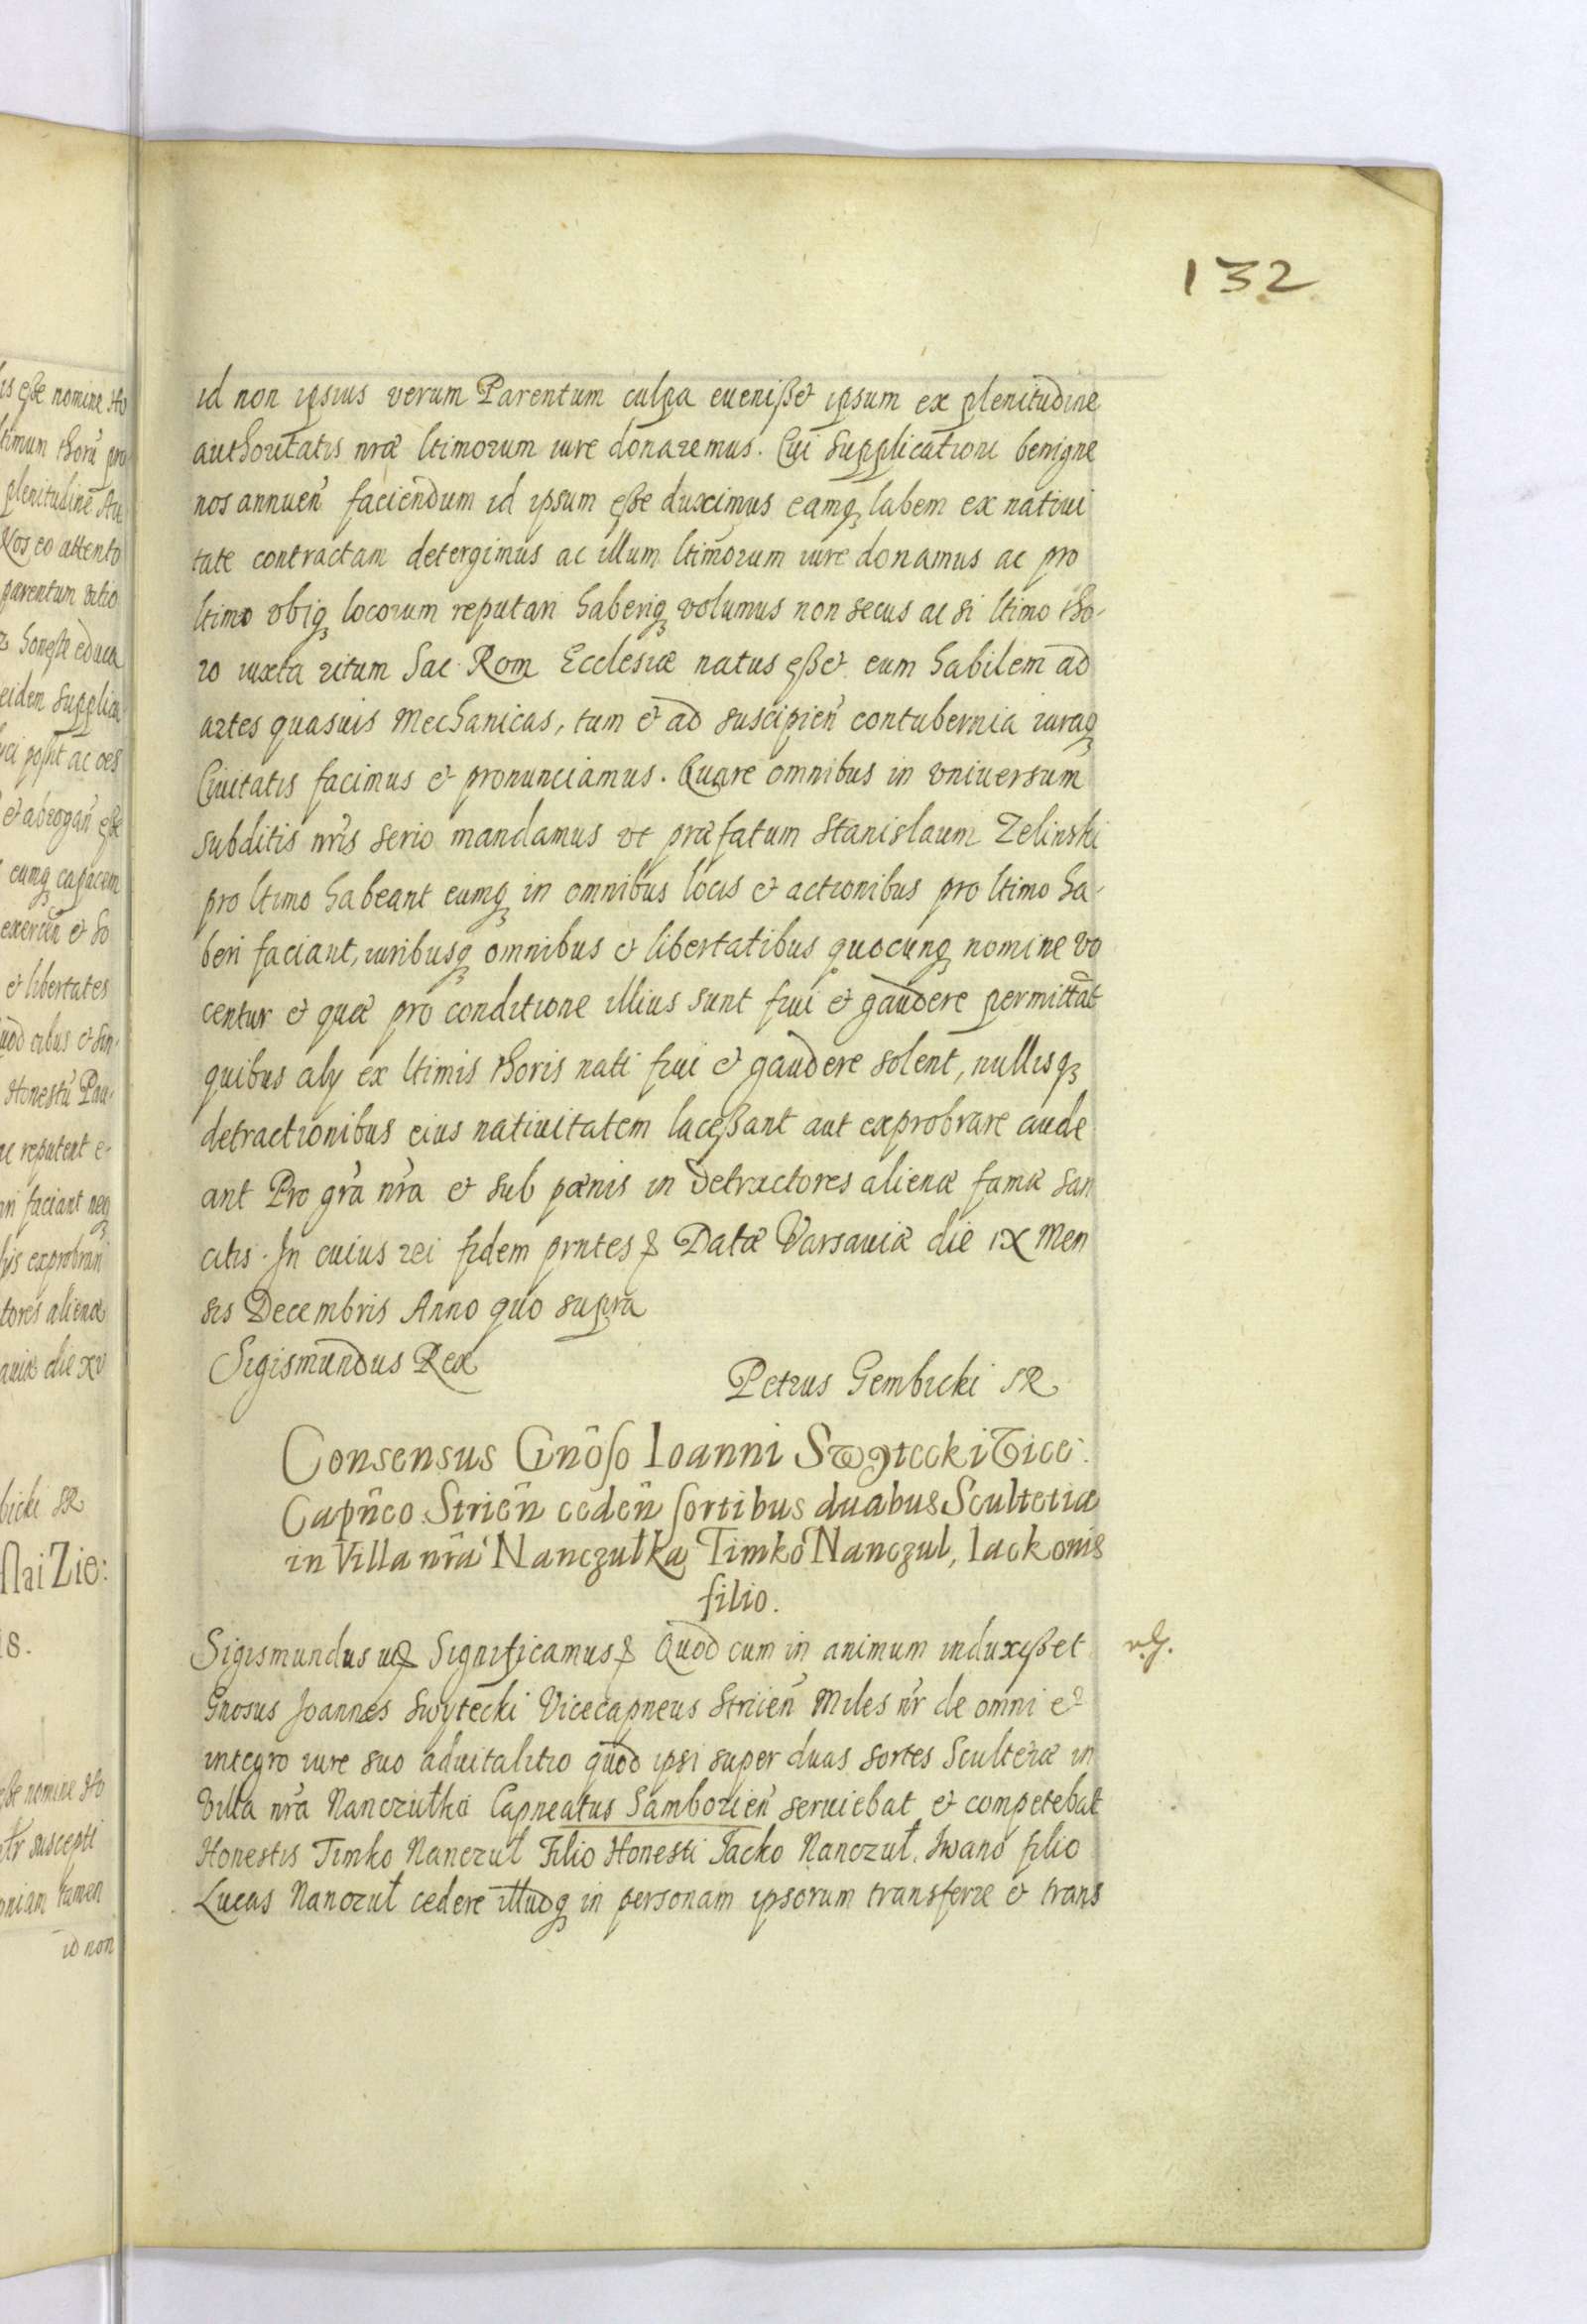 132
id non ipsius verum Parentum culpa evenißet ipsum ex plenitudine
authoritatis nræ ltimorum iure donaremus. Cui supplicationi benigne
nos annuen̄ faciendum id ipsum eße duximus eamq₃ labem ex nativi
tate contractam detergimus ac illum ltimorum iure donamus ac pro
ltimo vbiq₃ locorum reputari haberiq₃ volumus non secus ac si ltimo tho-
ro iuxta ritum Sac Rom Ecclesiæ natus eßet eum habilem ad
artes quasuis Mechanicas, tum et ad suscipien̄ contubernia iuraq₃
Ciuitatis facimus et pronunciamus. Quare omnibus in vniuersum
subditis nr̄is serio mandamus vt præfatum Stanislaum Zelinski
pro ltimo habeant eumq₃ in omnibus locis et actionibus pro ltimo ha-
beri faciant, iuribusq₃ omnibus et libertatibus quocunq₃ nomine vo
centur et quæ pro conditione illius sunt frui et gaudere permittāt
quibus aly ex ltimis thoris nati frui et gaudere solent, nullisq₃
detractionibus eius nativitatem laceßant aut exprobrare aude
ant Pro gr̄a nr̄a et sub pœnis in detractores alienæ famæ san
citis. In cuius rei fidem prntes & Datæ Varsauiæ die IX Men
sis Decembris Anno quo supra
Sigismundus Rex
Petrus Gembicki SR
Consensus Gn̄oso Ioanni Swyteckі Vice:
Capn̄eo Strien̄ ceden̄ sortibus duabus Scultetiæ
in Villa nr̄a Nanczułka Timko Nanczul, Iackonis
filio.
Sigismundus ut& Significamus & Quod cum in animum induxißet
Gnosus Joannes Swytecki Vicecapneus Striien̄ Miles nr̄ de omni et
integro iure suo aduitalitio quod ipsi super duas sortes Scultetiæ in
Villa nr̄a Nanczułka Capneatus Samborien̄ seruiebat et competebat
Honestis Timko Nanczuł Filio Honesti Jacko Nanczuł, Iwano filio
Lucas Nanczuł cedere illudq₃ in personam ipsorum transferre et trans